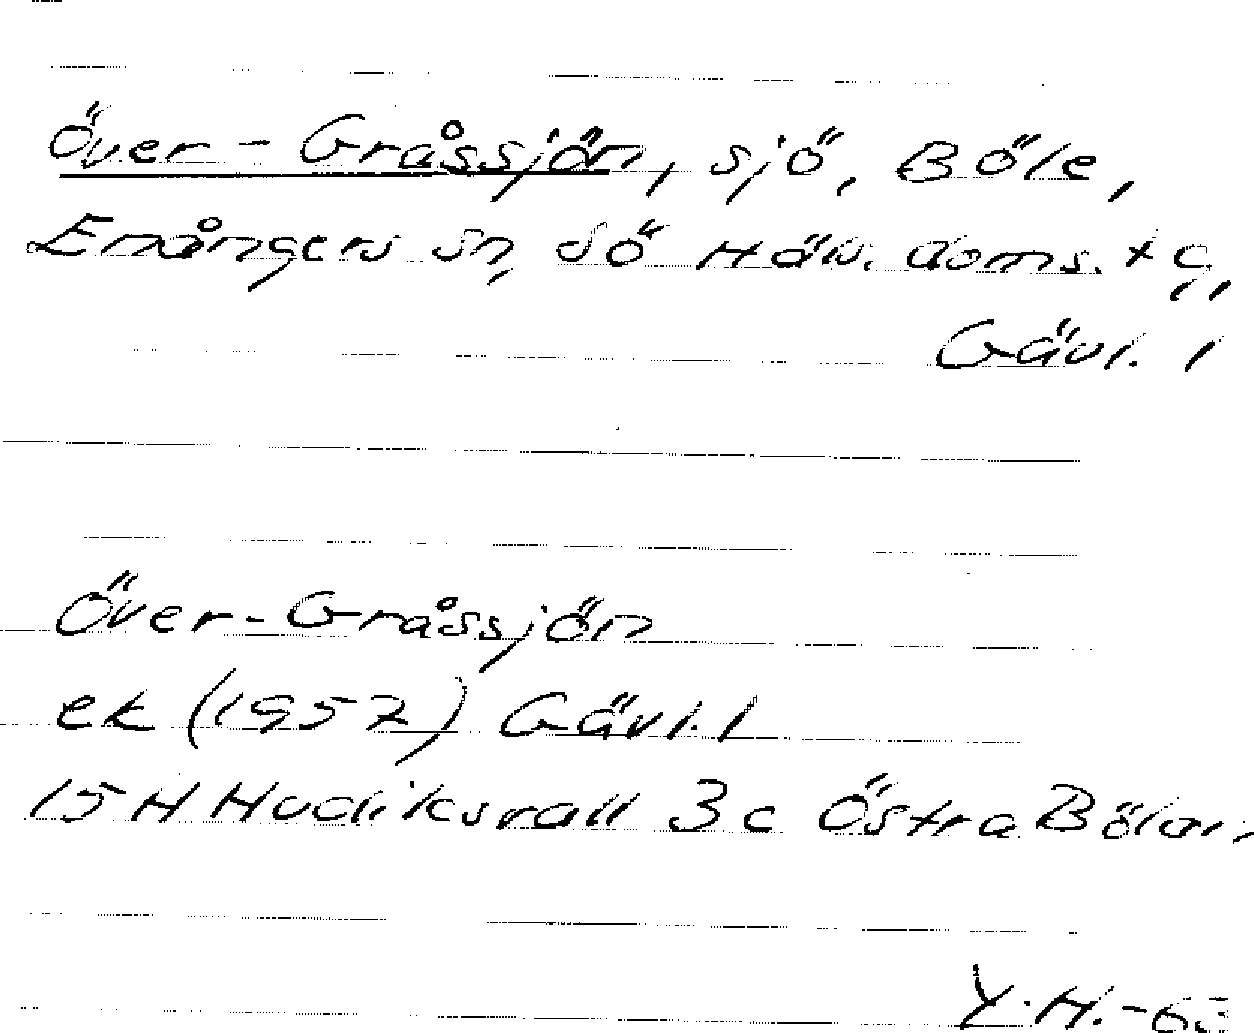 Över-Gråssjön, sjö, Böle,
Enångers sn, Sö Häls. doms. t g,
Gävl. l
Över-Gråssjön
ek (1957) Gävl. l
15 H Hudiksvall 3c Östra Bölan,
Y.H.-63